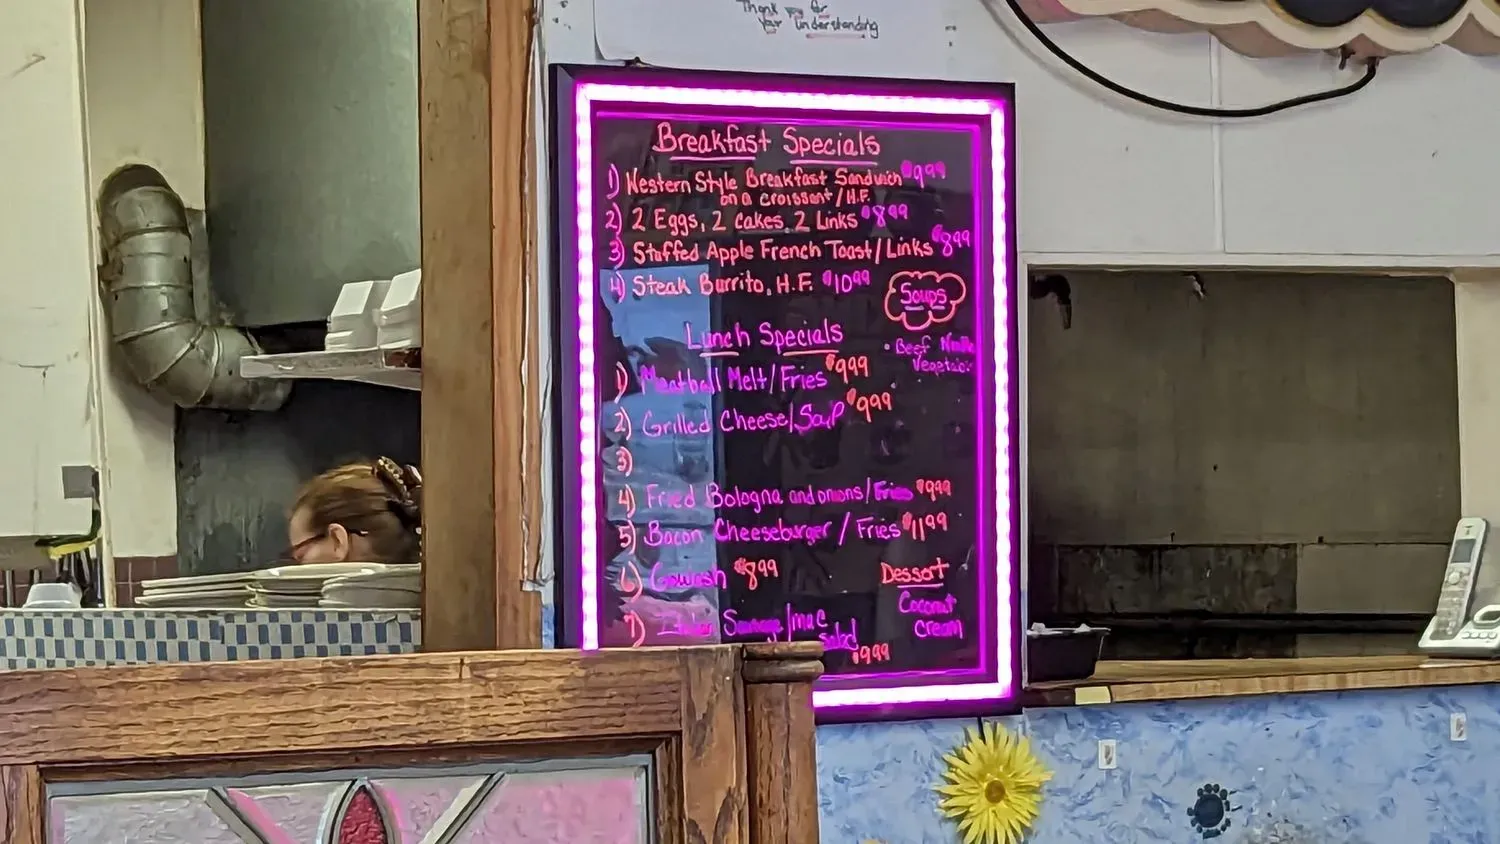 Thank you for
Your Understanding
Breakfast Specials
1) Western Style Breakfast Sandwich $9.99
on a croissant/H.F.
2) 2 Eggs, 2 cakes, 2 Links $8.99
3) Stuffed Apple French Toast/Links $8.99
4) Steak Burrito, H.F. $10.99
Soups
• Beef Noodle
Vegetable
Lunch Specials
1) Meatball Melt/Fries $9.99
2) Grilled Cheese/Soup $9.99
3)
4) Fried Bologna and onions/Fries $9.99
5) Bacon Cheeseburger / Fries $11.99
6) Goulash $8.99
7) Sausage/mac
salad
$9.99
Dessert
Coconut
Cream